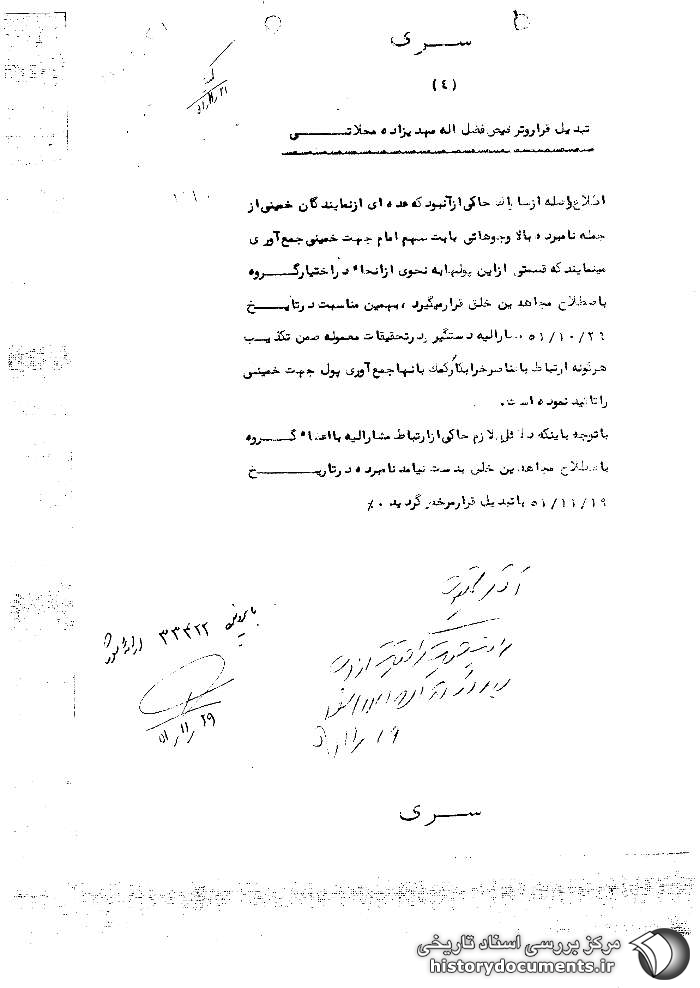 سری
(٤)
تبدیل قرار و ترخیص فضل اله مهدیزاده محلاتی
اطلاع واصله از ساواک حاکی از آنبود که عده ای از نمایندگان خمینی از
جمله نامبرده بالا وجوهاتی بابت سهم امام جهت خمینی جمع آوری
مینمایند که قسمتی از این پولها به نحوی از انحاء در اختیار گروه
باصطلاح مجاهدین خلق قرار میگیرد، بهمین مناسبت در تاریخ
٥١/١٠/٢٩ مشارالیه دستگیر و در تحقیقات معموله ضمن تکذیب
هرگونه ارتباط با عناصر خرابکار کمک بانها جمع آوری پول جهت خمینی
را تائید نموده است.
با توجه باینکه دلائل لازم حاکی از ارتباط مشارالیه با اعضاء گروه
باصطلاح مجاهدین خلق بدست نیامد نامبرده در تاریخ
٥١/١١/١٩ با تبدیل قرار مرخص گردید ٪٠
٣٣٤٢٢ ارائه شود
٥١/١١/٢٩
سری
مرکز بررسی اسناد تاریخی
historydocuments.ir